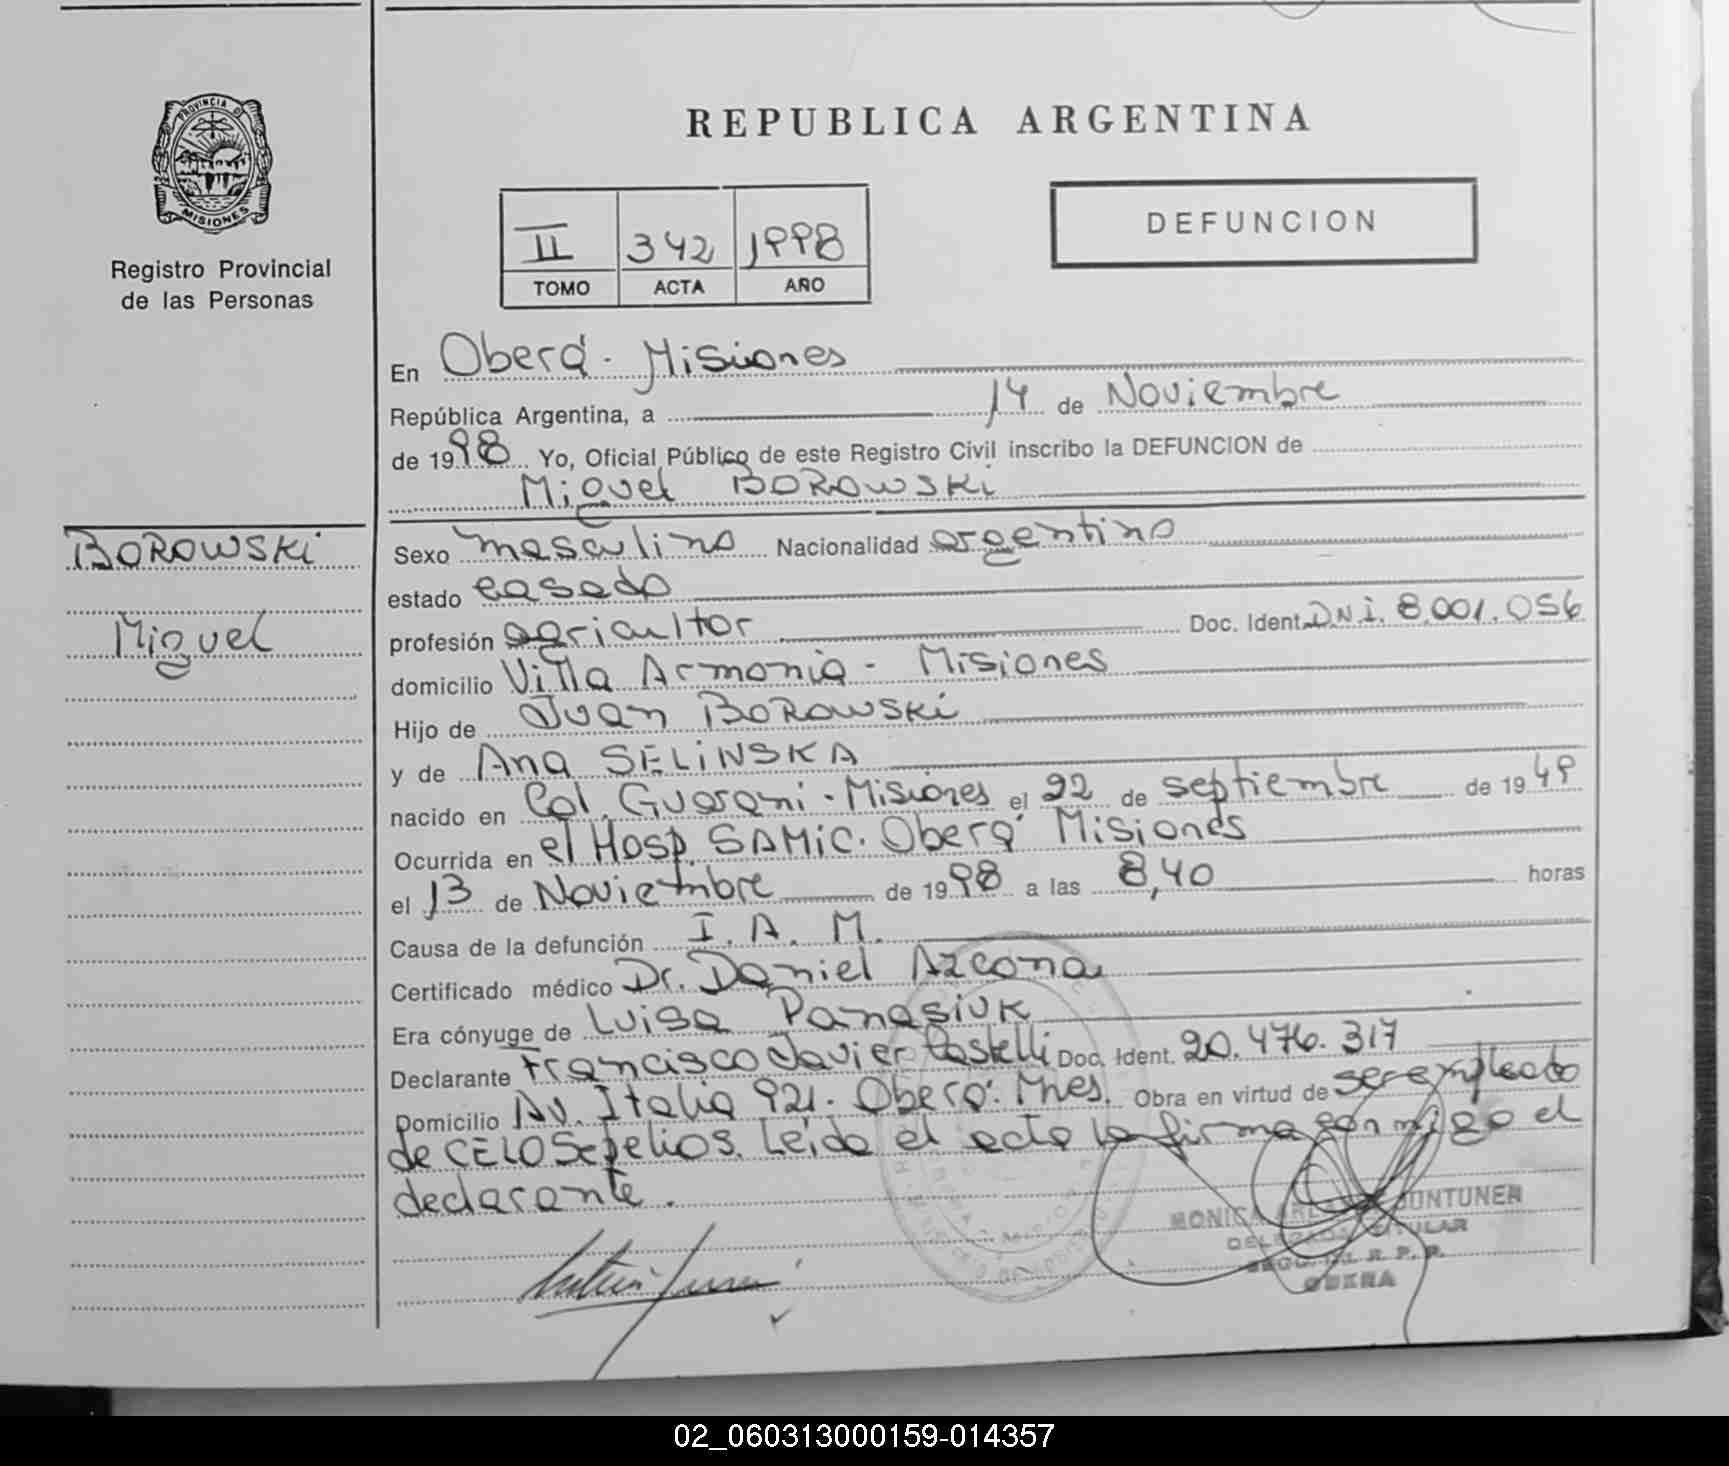 PROVINCIA DE
MISIONES
Registro Provincial
de las Personas
BOROWSKi
Miguel
REPUBLICA ARGENTINA
II 342 1998
TOMO ACTA AÑO
DEFUNCION
En Oberá - Misiones
República Argentina, a 14 de Noviembre
de 1998 Yo, Oficial Público de este Registro Civil inscribo la DEFUNCION de
Miguel BOROWSKi
Sexo masculino Nacionalidad argentino
estado casado
profesión agricultor Doc. Ident. D.N.i. 8.001.056
domicilio Villa Armonia - Misiones
Hijo de Juan BOROWSKi
y de Ana SELiNSKA
nacido en Col. Guarani - Misiones el 22 de septiembre de 1949
Ocurrida en el Hosp. SAMiC. Oberá Misiones
el 13 de Noviembre de 1998 a las 8,40 horas
Causa de la defunción I. A. M.
Certificado médico Dr. Daniel Azcona
Era cónyuge de Luisa Panasiuk
Declarante Francisco Javier Castelli Doc. Ident. 20.476.317
Domicilio Av. Italia 921. Oberá. Mnes. Obra en virtud de ser empleado
de CELO Sepelios. Leida el acta la firma conmigo el
declarante.
MONICA JUNTUNEN
DELEGADA TITULAR
R. P. P.
OBERA
02_060313000159-014357